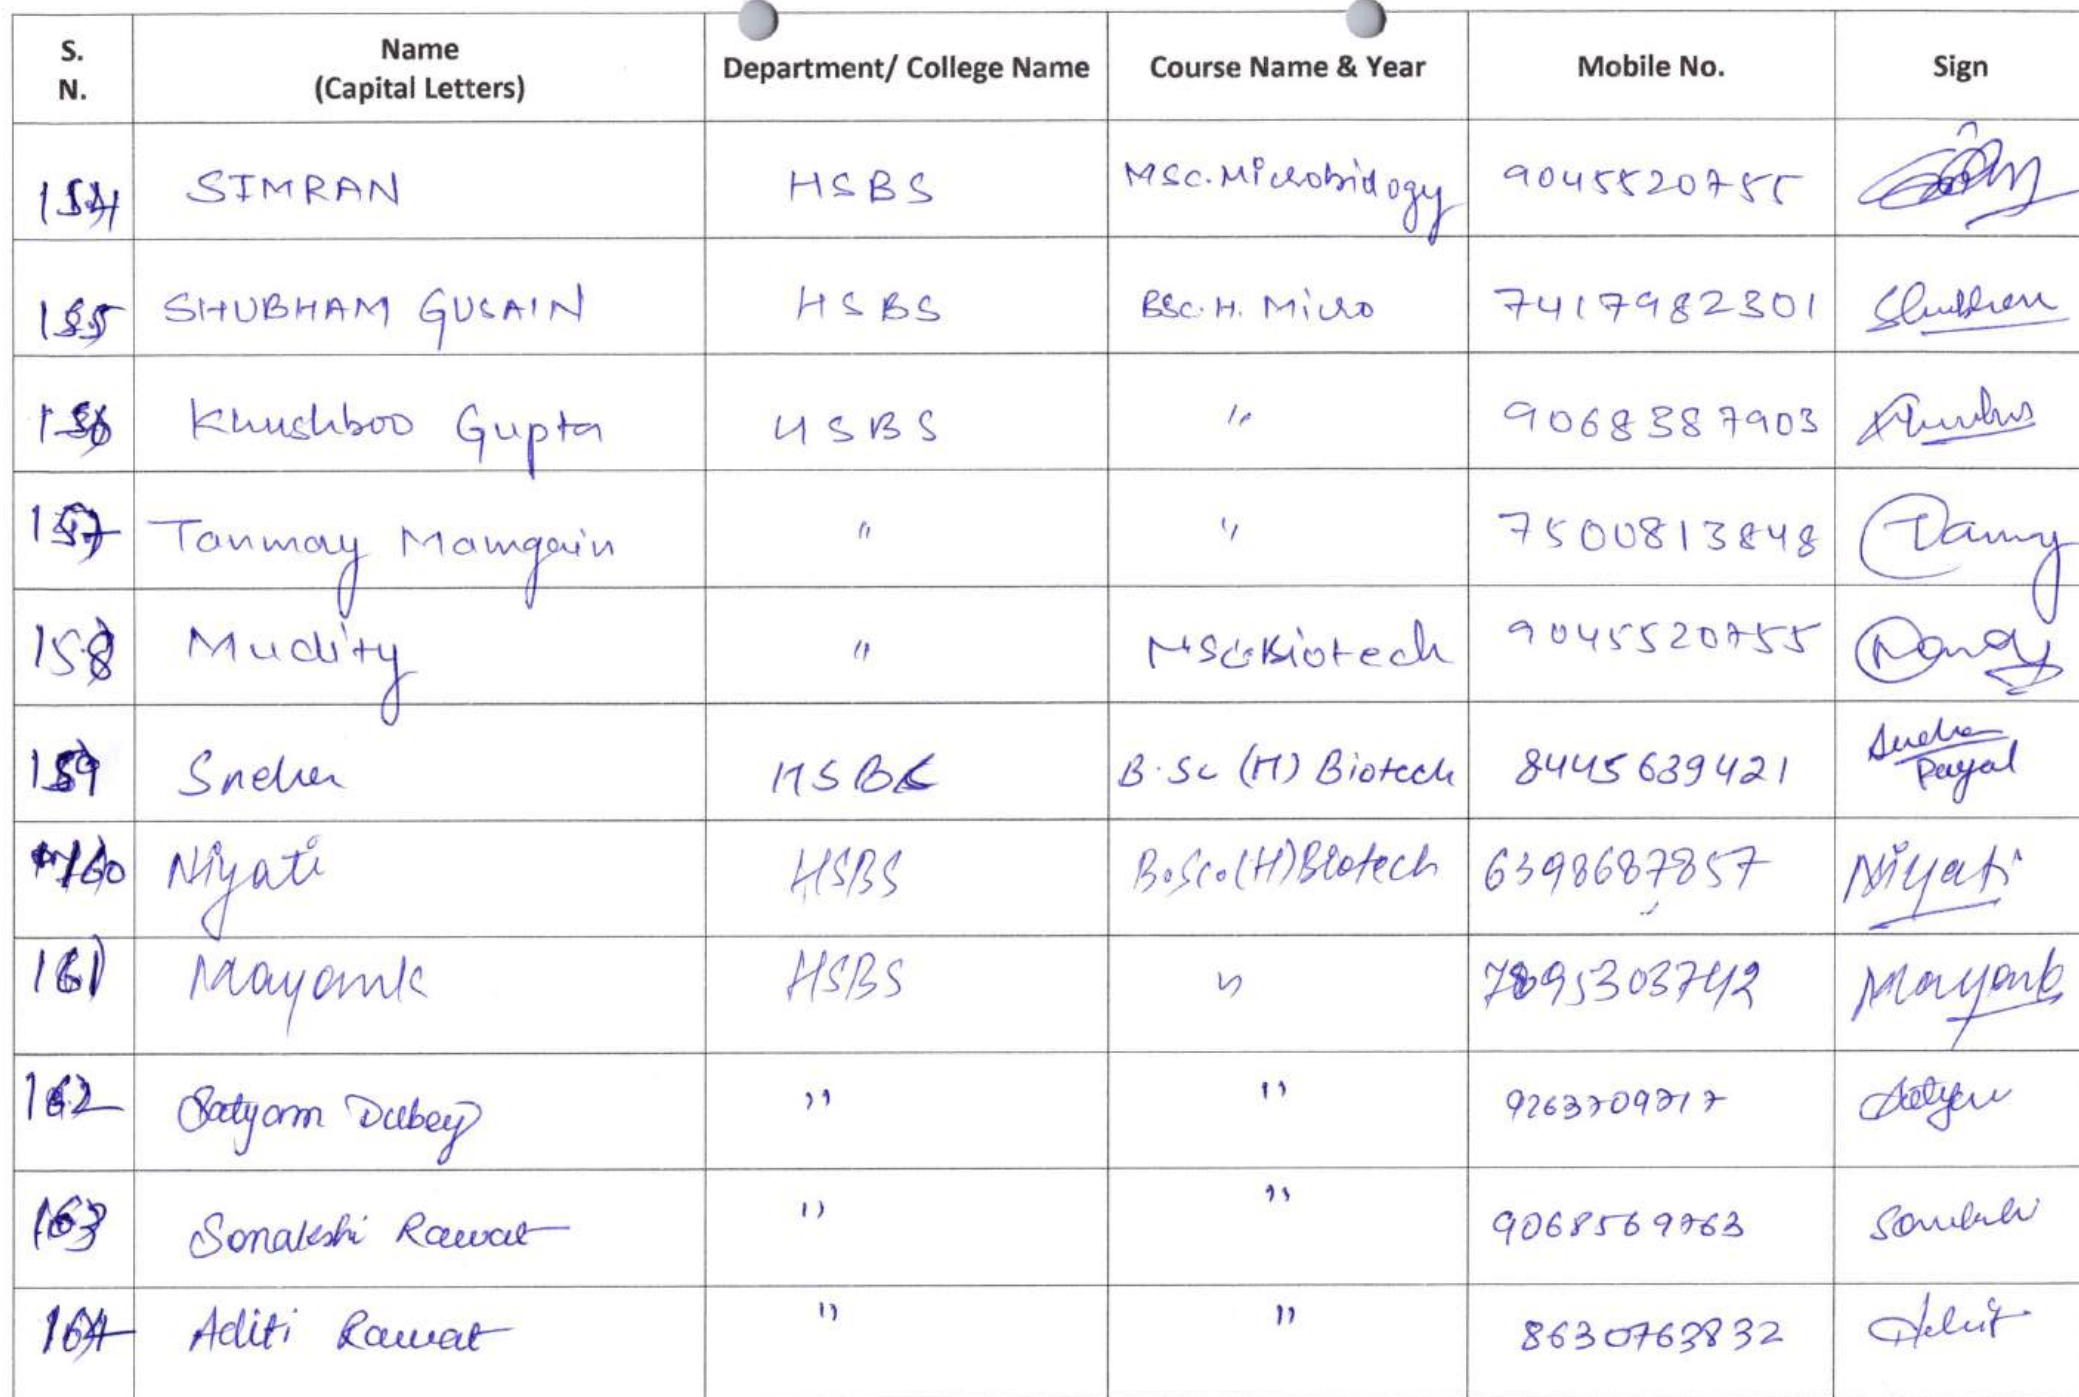 S. N. Name (Capital Letters) Department/ College Name Course Name & Year Mobile No. Sign
154 SIMRAN HSBS MSc. Microbiology 9045520755
155 SHUBHAM GUSAIN HSBS BSc. H. Micro 7417982301 Shubham
156 Khushboo Gupta HSBS " 9068387903
157 Tanmay Mamgain " " 7500813848
158 Mudity " MSc Biotech 9045520755
159 Sneha HSBS B.Sc (H) Biotech 8445639421 Sneha Payal
160 Niyati HSBS B.Sc.(H) Biotech 6398687857 Niyati
161 Mayank HSBS " 7895303742 Mayank
162 Satyam Dubey " " 9263709717 Satyam
163 Sonakshi Rawat " " 9068569763 Sonakshi
164 Aditi Rawat " " 8630763832